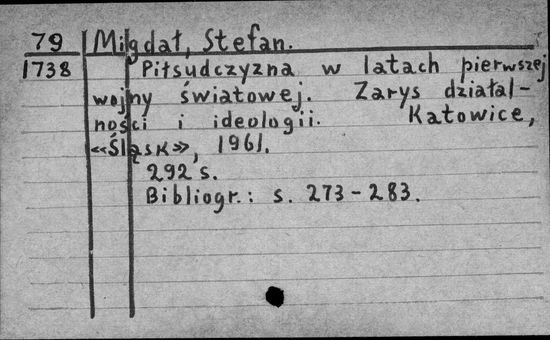 79 Migdał, Stefan.
1738 Piłsudczyzna w latach pierwszej
wojny światowej. Zarys działal-
ności i ideologii. Katowice,
«Śląsk», 1961.
292 s.
Bibliogr.: s. 273-283.